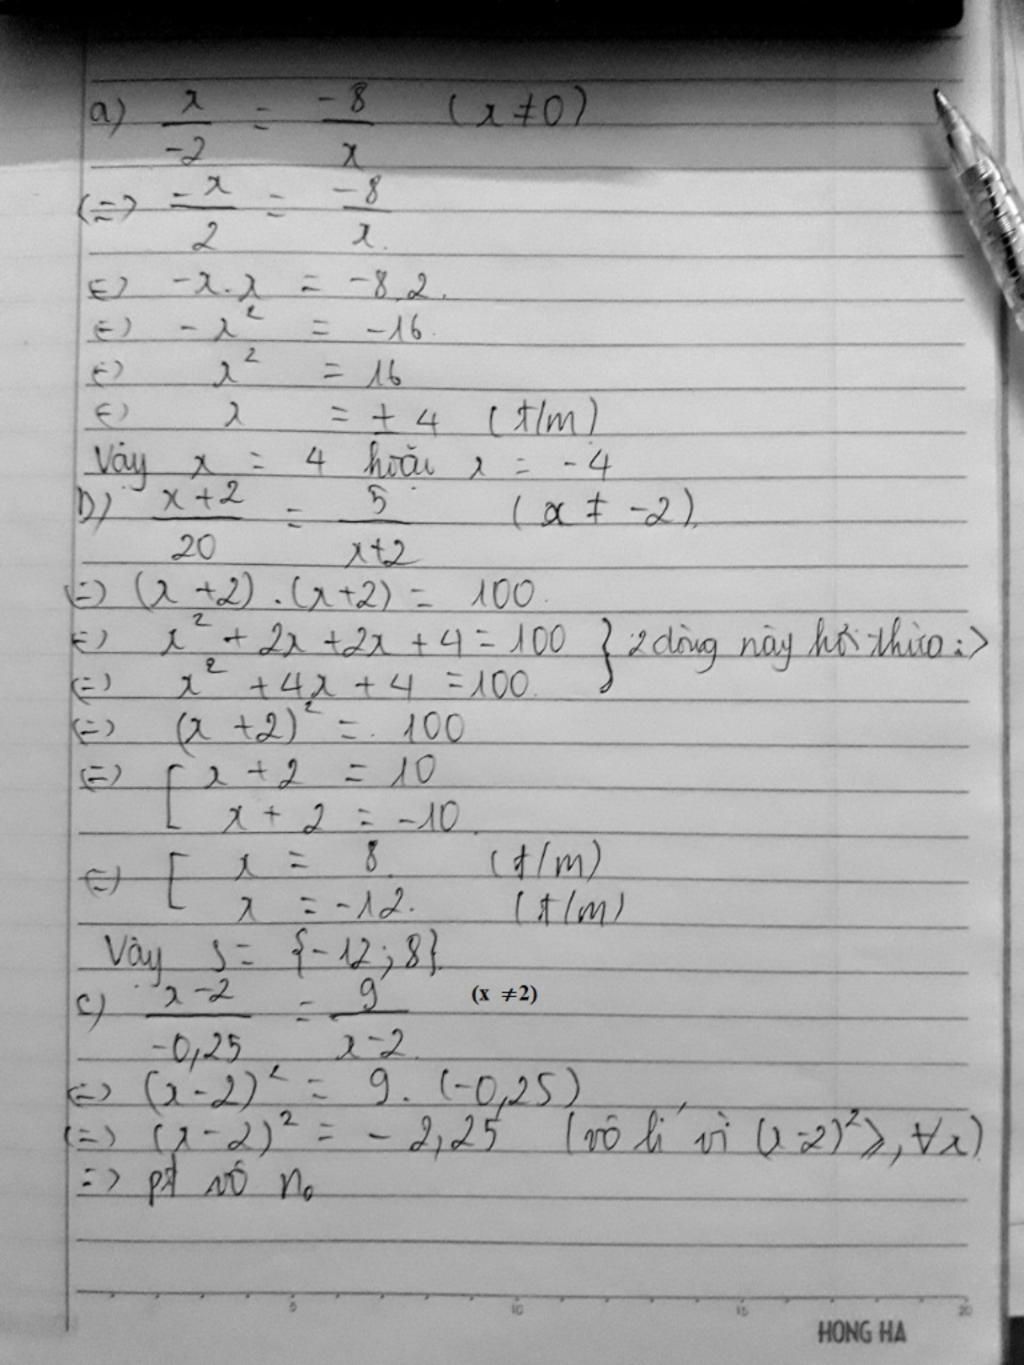 a) x/-2 = -8/x (x ≠ 0)
(=) -x/2 = -8/x
(=) -x.x = -8.2.
(=) -x² = -16.
(=) x² = 16
(=) x = ± 4 (t/m)
Vậy x = 4 hoặc x = -4
b) x+2/20 = 5/x+2 (x ≠ -2).
(=) (x+2).(x+2) = 100.
(=) x² + 2x + 2x + 4 = 100 } 2 dòng này hơi thừa :>
(=) x² + 4x + 4 = 100.
(=) (x+2)² = 100
(=) [ x + 2 = 10
x + 2 = -10.
(=) [ x = 8. (t/m)
x = -12. (t/m)
Vậy S = {-12; 8}.
c) x-2/-0,25 = 9/x-2. (x ≠2)
(=) (x-2)² = 9.(-0,25)
(=) (x-2)² = -2,25 (vô lí vì (x-2)² ≥, ∀x)
=> pt vô no
5 10 15 20
HONG HA